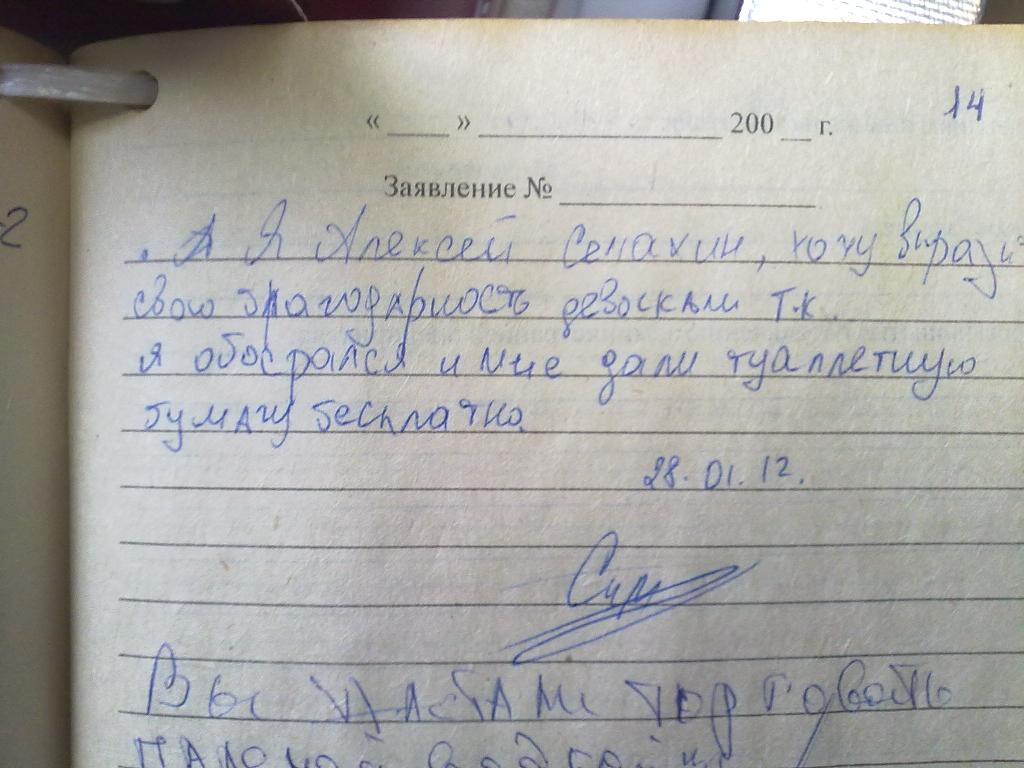 14
« ____ » ____________ 200 __ г.
Заявление № ____________
Я Алексей Сенакин, хочу вырази
свою благодарность девоскам т.к.
я обосрался и мне дали туаллетную
бумагу бесплатно
28.01.12.
Вы торговать
2